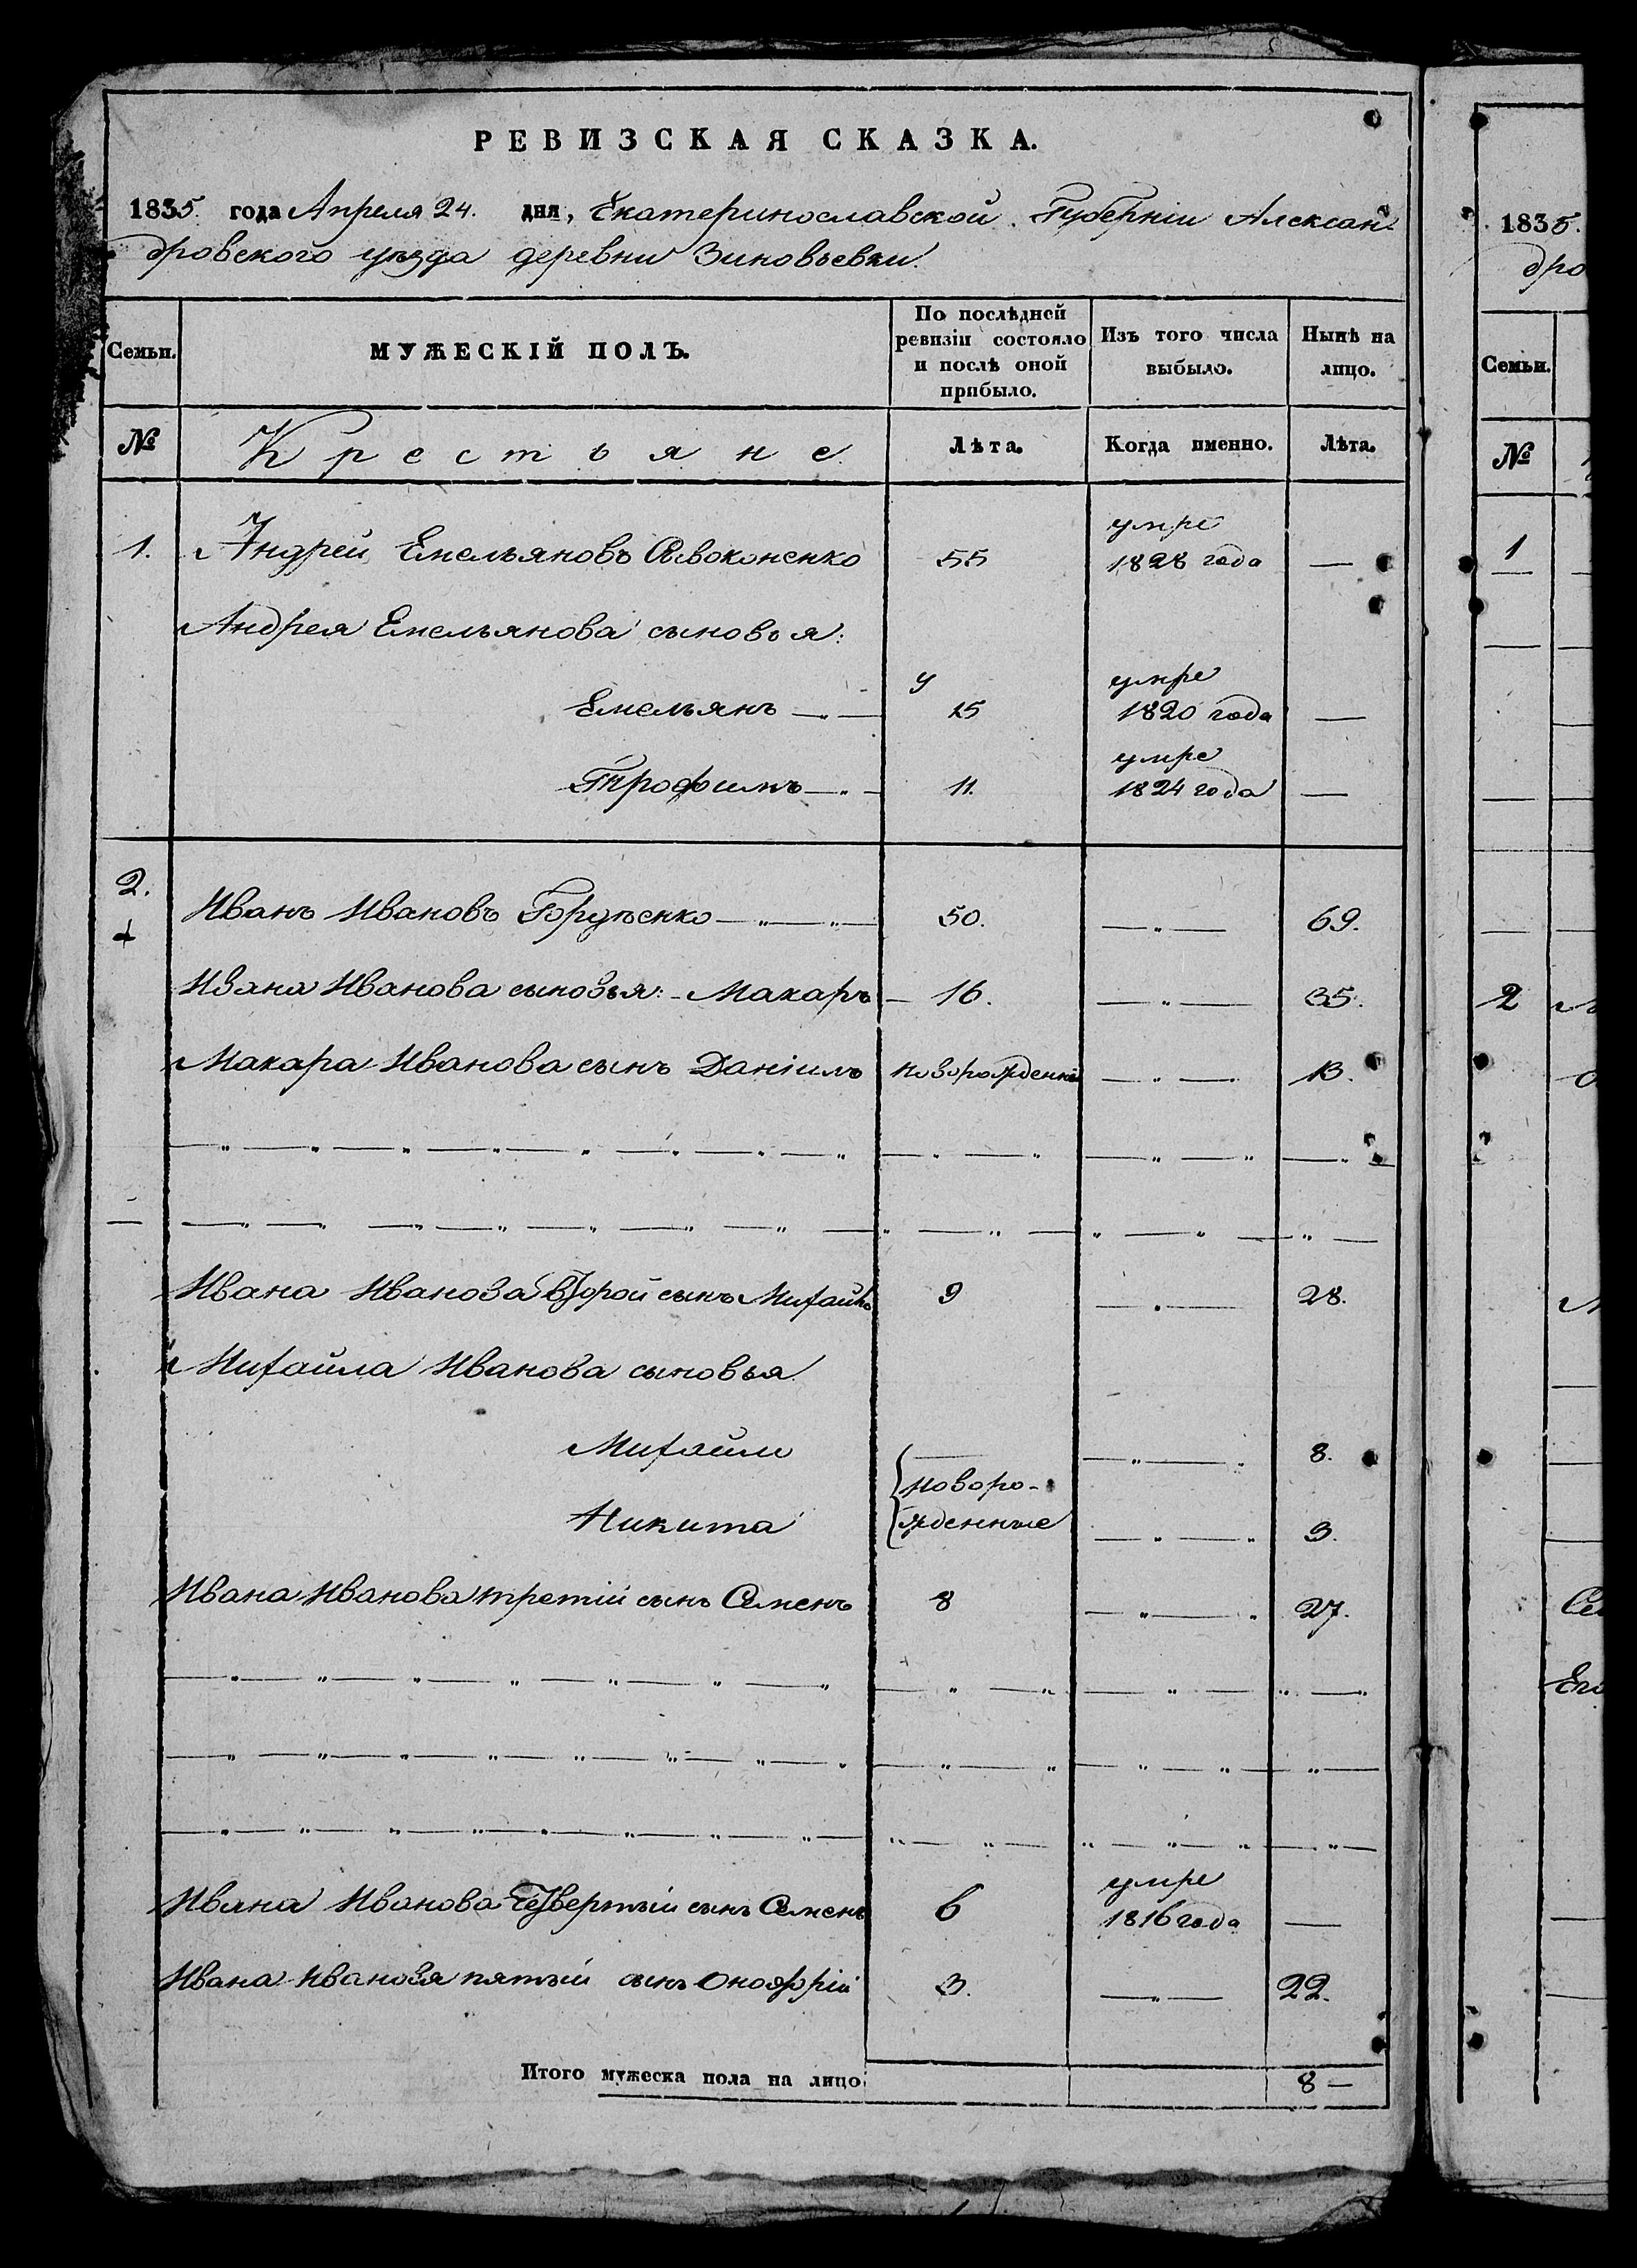 РЕВИЗСКАЯ СКАЗКА.
1835. года Апреля 24. дня, Екатеринославской Губерніи Алексан-
дровского уѣзда деревни Зиновьевки.
Семьи. МУЖЕСКІЙ ПОЛЪ. По послѣдней ревизіи состояло и послѣ оной прибыло. Изъ того числа выбыло. Нынѣ на лицо.
№ Крестьяне Лѣта. Когда именно. Лѣта.
1. Андрей Емельяновъ 55 умре 1828 года —
Андрея Емельянова сыновья:
Емельянъ 15 умре 1820 года —
Трофимъ 11. умре 1824 года —
2. Иванъ Ивановъ 50. — " — 69.
Ивана Иванова сыновья: Макаръ 16. — " — 35.
Макара Иванова сынъ Даніилъ новорожденный — " — 13.
Ивана Иванова второй сынъ Михайло 9 — " — 28.
Михайла Иванова сыновья
Михайли 8.
новоро-
Никита жденные 3.
Ивана Иванова третій сынъ Семенъ 8 — " — 27.
Ивана Иванова Четвертый сынъ Семенъ 6 умре 1816 года —
Ивана Иванова пятый сынъ Оноффрій 3. — " — 22.
Итого мужеска пола на лицо 8 —
1835.
дро
Семьи.
№
1
2